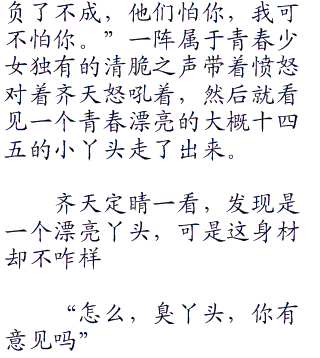 负了不成，他们怕你，我可
不怕你。”一阵属于青春少
女独有的清脆之声带着愤怒
对着齐天怒吼着，然后就看
见一个青春漂亮的大概十四
五的小丫头走了出来。
齐天定睛一看，发现是
一个漂亮丫头，可是这身材
却不咋样
“怎么，臭丫头，你有
意见吗”